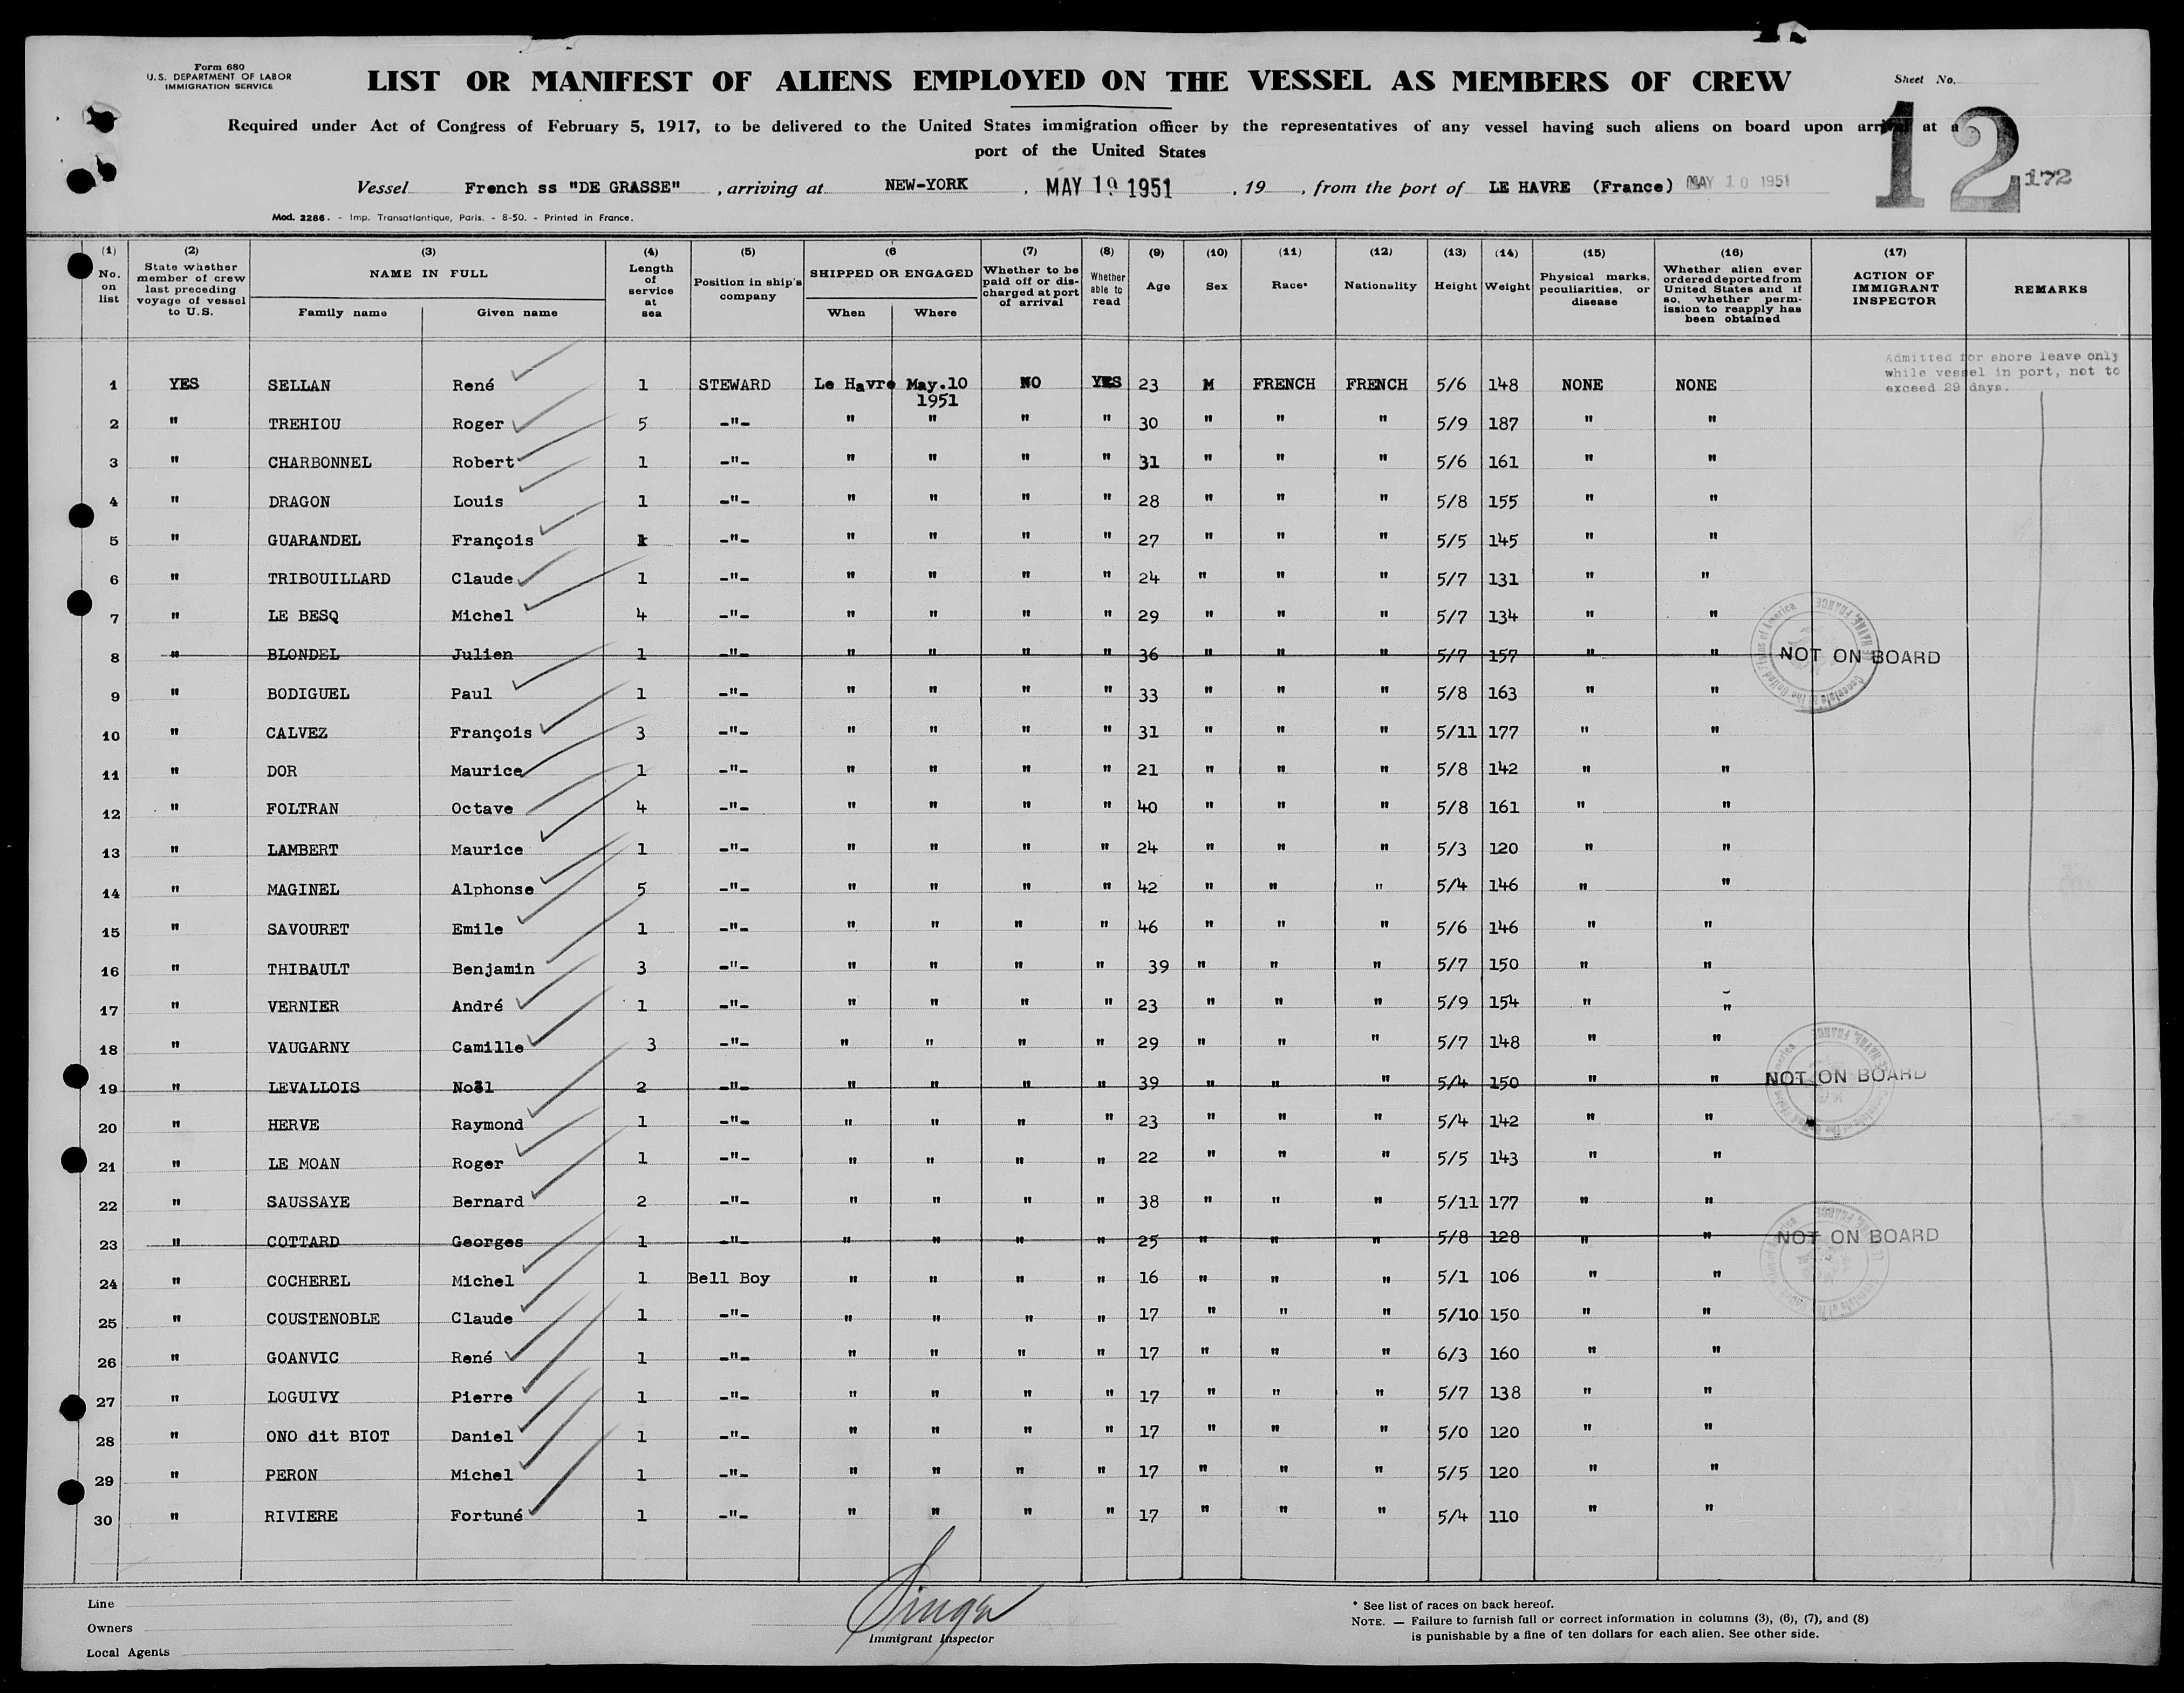 Form 680
U.S. DEPARTMENT OF LABOR
IMMIGRATION SERVICE
LIST OR MANIFEST OF ALIENS EMPLOYED ON THE VESSEL AS MEMBERS OF CREW
Sheet No.
12
172
Required under Act of Congress of February 5, 1917, to be delivered to the United States immigration officer by the representatives of any vessel having such aliens on board upon arrival at a
port of the United States
Vessel French ss "DE GRASSE" , arriving at NEW-YORK , MAY 19 1951 , 19 , from the port of LE HAVRE (France) MAY 10 1951
Mod. 2286. - Imp. Transatlantique, Paris. - 8-50. - Printed in France.
(1) No. on list
(2) State whether member of crew last preceding voyage of vessel to U.S.
(3) NAME IN FULL Family name Given name
(4) Length of service at sea
(5) Position in ship's company
(6 SHIPPED OR ENGAGED When Where
(7) Whether to be paid off or discharged at port of arrival
(8) Whether able to read
(9) Age
(10) Sex
(11) Race*
(12) Nationality
(13) Height
(14) Weight
(15) Physical marks, peculiarities, or disease
(16) Whether alien ever ordered deported from United States and if so, whether permission to reapply has been obtained
(17) ACTION OF IMMIGRANT INSPECTOR
REMARKS
Admitted for shore leave only
while vessel in port, not to
exceed 29 days.
1 YES SELLAN René 1 STEWARD Le Havre May.10 1951 NO YES 23 M FRENCH FRENCH 5/6 148 NONE NONE
2 " TREHIOU Roger 5 -"- " " " " 30 " " " 5/9 187 " "
3 " CHARBONNEL Robert 1 -"- " " " " 31 " " " 5/6 161 " "
4 " DRAGON Louis 1 -"- " " " " 28 " " " 5/8 155 " "
5 " GUARANDEL François 1 -"- " " " " 27 " " " 5/5 145 " "
6 " TRIBOUILLARD Claude 1 -"- " " " " 24 " " " 5/7 131 " "
7 " LE BESQ Michel 4 -"- " " " " 29 " " " 5/7 134 " "
8 " BLONDEL Julien 1 -"- " " " " 36 " " " 5/7 157 " " NOT ON BOARD
9 " BODIGUEL Paul 1 -"- " " " " 33 " " " 5/8 163 " "
10 " CALVEZ François 3 -"- " " " " 31 " " " 5/11 177 " "
11 " DOR Maurice 1 -"- " " " " 21 " " " 5/8 142 " "
12 " FOLTRAN Octave 4 -"- " " " " 40 " " " 5/8 161 " "
13 " LAMBERT Maurice 1 -"- " " " " 24 " " " 5/3 120 " "
14 " MAGINEL Alphonse 5 -"- " " " " 42 " " " 5/4 146 " "
15 " SAVOURET Emile 1 -"- " " " " 46 " " " 5/6 146 " "
16 " THIBAULT Benjamin 3 -"- " " " " 39 " " " 5/7 150 " "
17 " VERNIER André 1 -"- " " " " 23 " " " 5/9 154 " "
18 " VAUGARNY Camille 3 -"- " " " " 29 " " " 5/7 148 " "
19 " LEVALLOIS Noël 2 -"- " " " " 39 " " " 5/4 150 " " NOT ON BOARD
20 " HERVE Raymond 1 -"- " " " " 23 " " " 5/4 142 " "
21 " LE MOAN Roger 1 -"- " " " " 22 " " " 5/5 143 " "
22 " SAUSSAYE Bernard 2 -"- " " " " 38 " " " 5/11 177 " "
23 " COTTARD Georges 1 -"- " " " " 25 " " " 5/8 128 " " NOT ON BOARD
24 " COCHEREL Michel 1 Bell Boy " " " " 16 " " " 5/1 106 " "
25 " COUSTENOBLE Claude 1 -"- " " " " 17 " " " 5/10 150 " "
26 " GOANVIC René 1 -"- " " " " 17 " " " 6/3 160 " "
27 " LOGUIVY Pierre 1 -"- " " " " 17 " " " 5/7 138 " "
28 " ONO dit BIOT Daniel 1 -"- " " " " 17 " " " 5/0 120 " "
29 " PERON Michel 1 -"- " " " " 17 " " " 5/5 120 " "
30 " RIVIERE Fortuné 1 -"- " " " " 17 " " " 5/4 110 " "
Line
Owners
Local Agents
Immigrant Inspector
* See list of races on back hereof.
NOTE. — Failure to furnish full or correct information in columns (3), (6), (7), and (8)
is punishable by a fine of ten dollars for each alien. See other side.